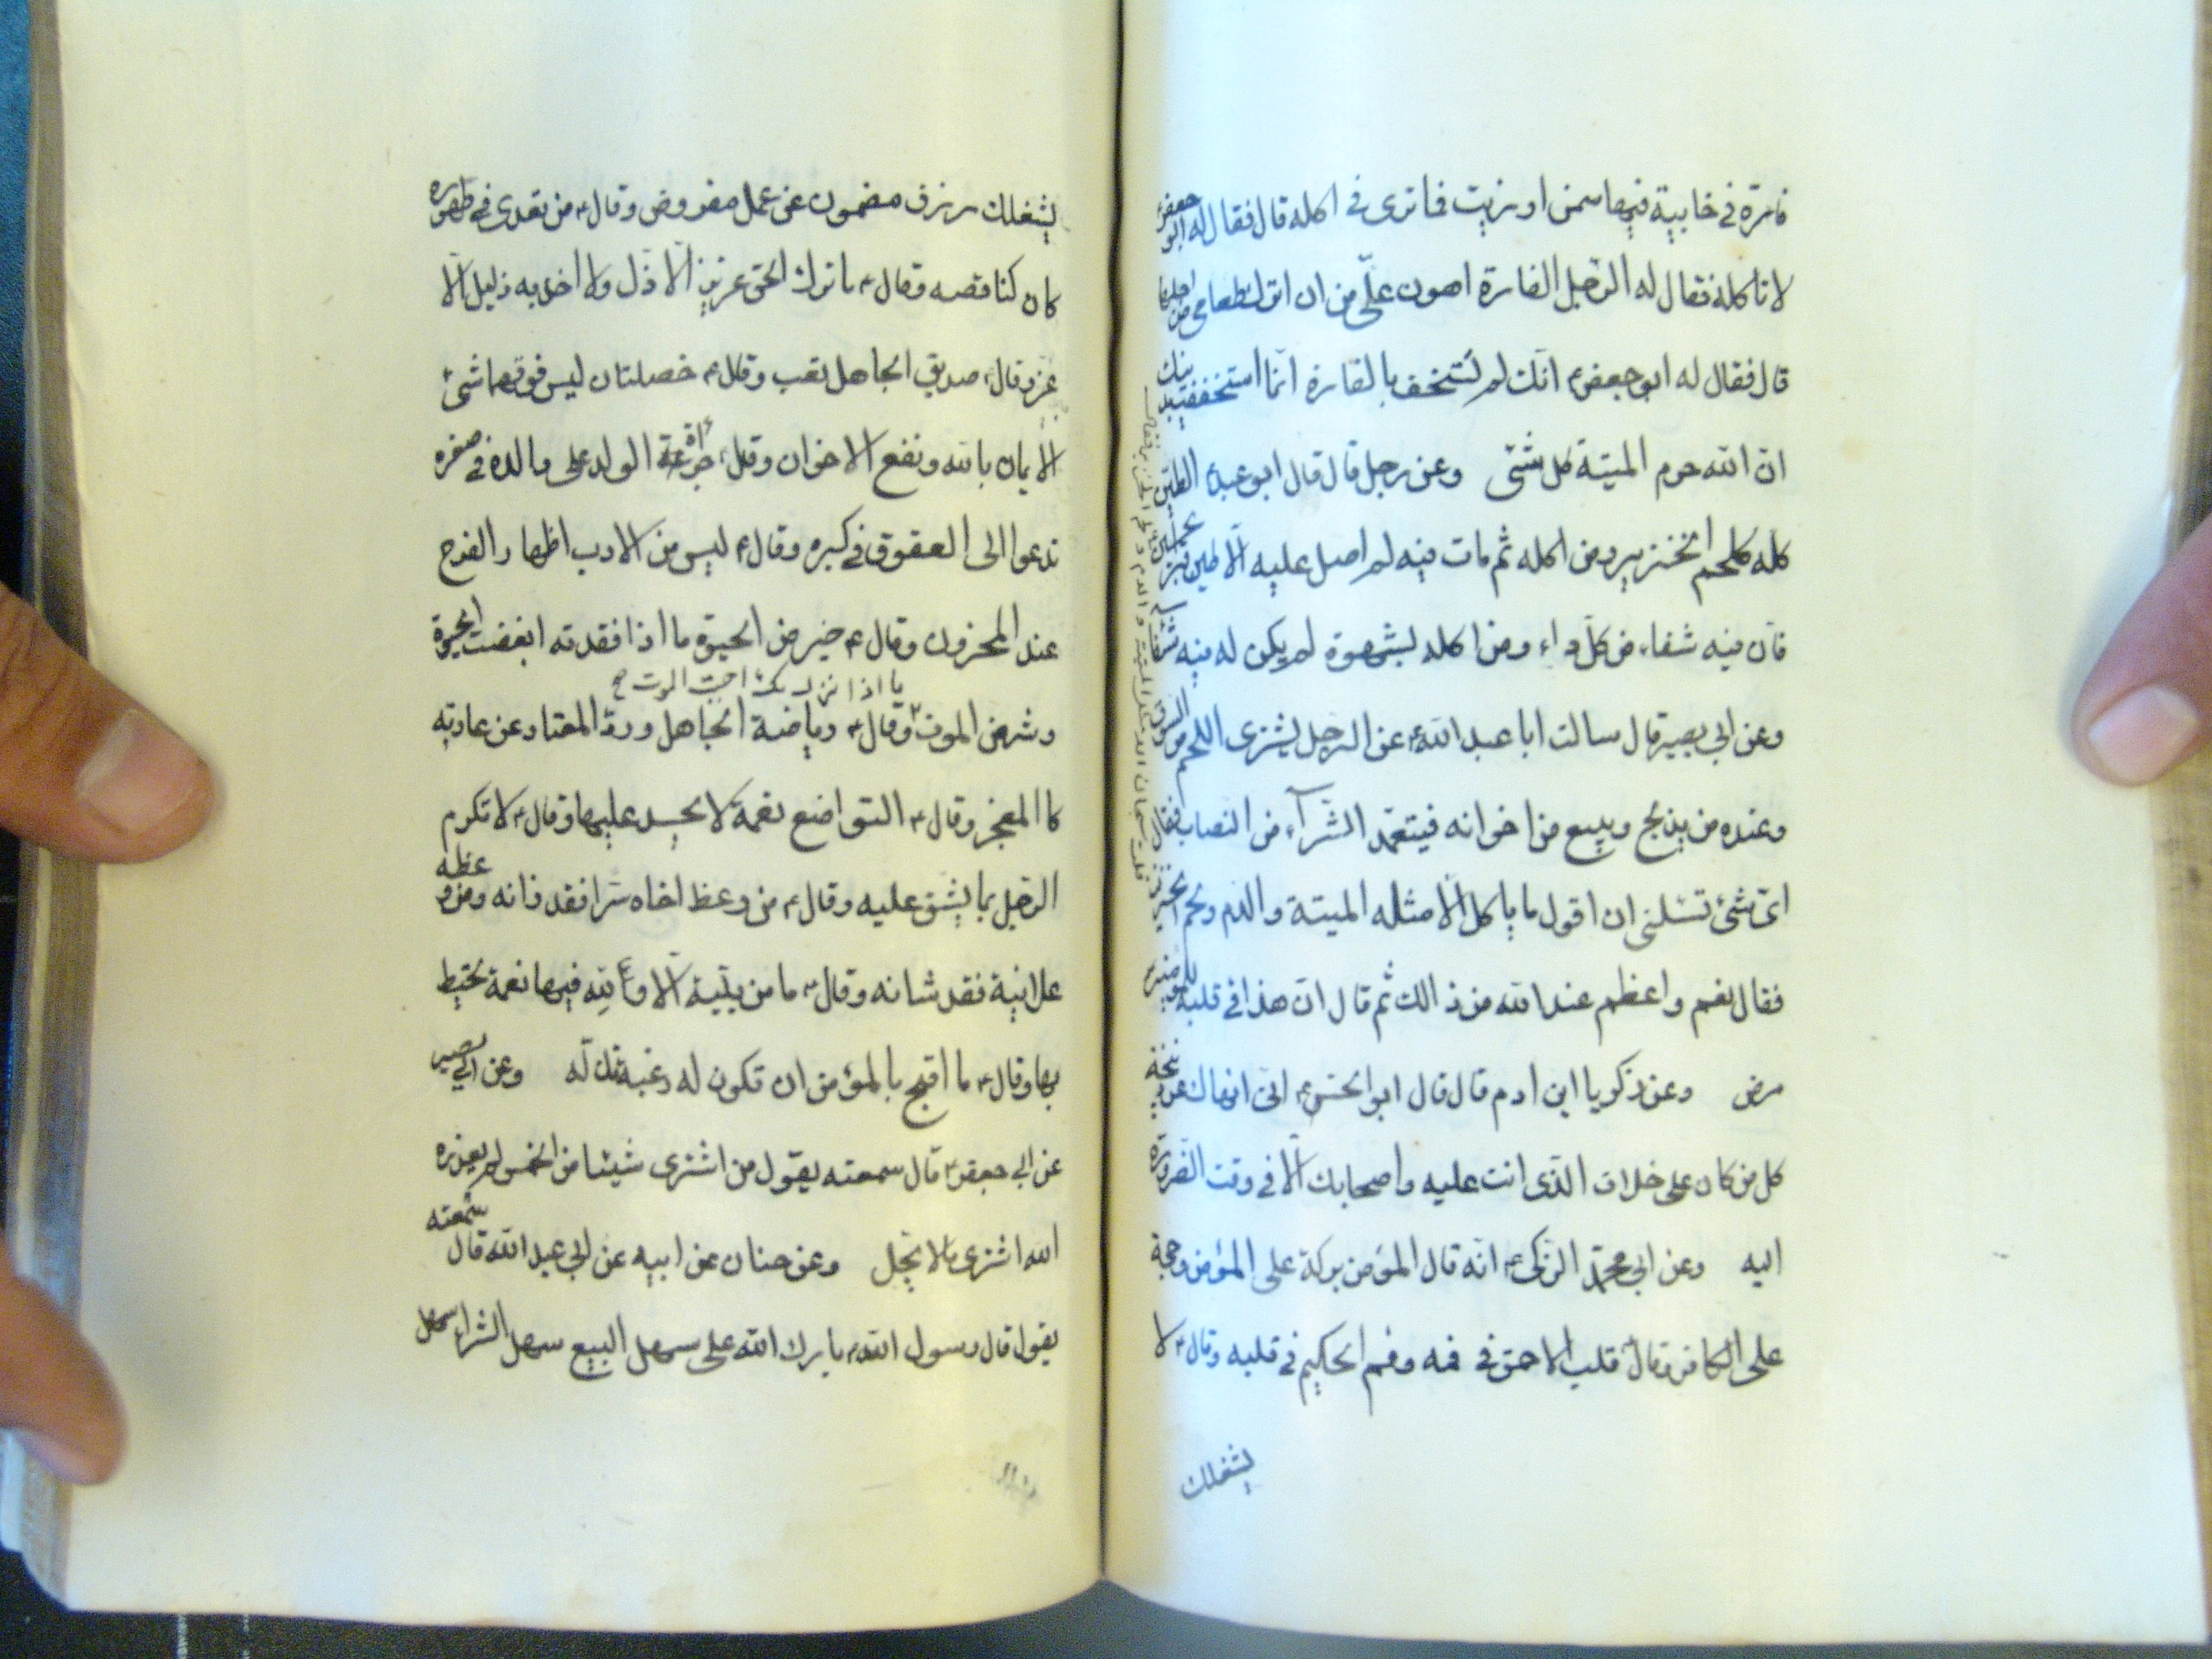 فارة في خابية فيها سمن او زيت فما ترى في اكله قال فقال له ابو جعفر ع
لا تاكله فقال له الرّجل الفارة اهون علىّ من ان اترك طعامي من اجلها
قال فقال له ابو جعفر ع انّك لم تستخف بالفارة انّما استخففت بدينك
انّ الله حرم الميتة كل شئ وعن رجل قال قال ابو عبد الله ع الطين
كله كلحم الخنزير ومن اكله ثم مات فيه لم اصل عليه الّا طين قبر
فانّ فيه شفاء من كلّ داء ومن اكله بشهوة لم يكن له فيه شفاء
وعن ابي بصير قال سالت ابا عبد الله ع عن الرجل يشترى اللحم من السوق
وعنده من يذبح ويبيع من اخوانه فيتعمّد الشّرآء من النصاب فقال
اىّ شئ تسئلنى ان اقول ما ياكل الّا مثله الميتة والدّم ولحم الخنزير
فقال نعم واعظم عند الله من ذالك ثم قال انّ هذا في قلبه للمؤمنين
مرض وعن زكريا ابن ادم قال قال ابو الحسن ع انّى انهاك عن ذبيحة
كل من كان على خلاف الّذى انت عليه واصحابك الّا في وقت الضّرورة
اليه وعن ابي محمّد الزّكى ع انّه قال المؤمن بركة على المؤمن وحجة
على الكافر وقال ع قلب الاحمق في فمه وفم الحكيم في قلبه وقال ع لا
يشغلك
يشغلك رزق مضمون عن عمل مفروض وقال ع من تعدى في طهوره
كان كناقصه وقال ع ما ترك الحق عزيز الّا ذلّ ولا اخذ به ذليل الّا
عز وقال ع صديق الجاهل تعب وقال ع خصلتان ليس فوقهما شئ
الايمان بالله ونفع الاخوان وقال ع جرأة الولد على والده في صغره
تدعوا الى العقوق في كبره وقال ع ليس من الادب اظهار الفرح
عند المحزون وقال ع خير من الحيوة ما اذا فقدته ابغضت الحيوة
ما اذا نزل بك احببت الموت صح
وشر من الموت وقال ع رياضة الجاهل وردّ المعتاد عن عادته
كالمعجز وقال ع التواضع نعمة لا يحسد عليها وقال ع لا تكرم
الرّجل بما يشق عليه وقال ع من وعظ اخاه سرّا فقد زانه ومن وعظه
علانية فقد شانه وقال ع ما من بليّة الّا ولله فيها نعمة تحيط
بها وقال ع ما اقبح بالمؤمن ان تكون له رغبة تذلّه وعن ابي بصير
عن ابي جعفر ع قال سمعته يقول من اشترى شيئا من الخمس لم يعذره
الله اشترى ما لا يحلّ وعن حنان عن ابيه عن ابي عبد الله قال سمعته
يقول قال رسول الله ص بارك الله على سهل البيع سهل الشراء سهل